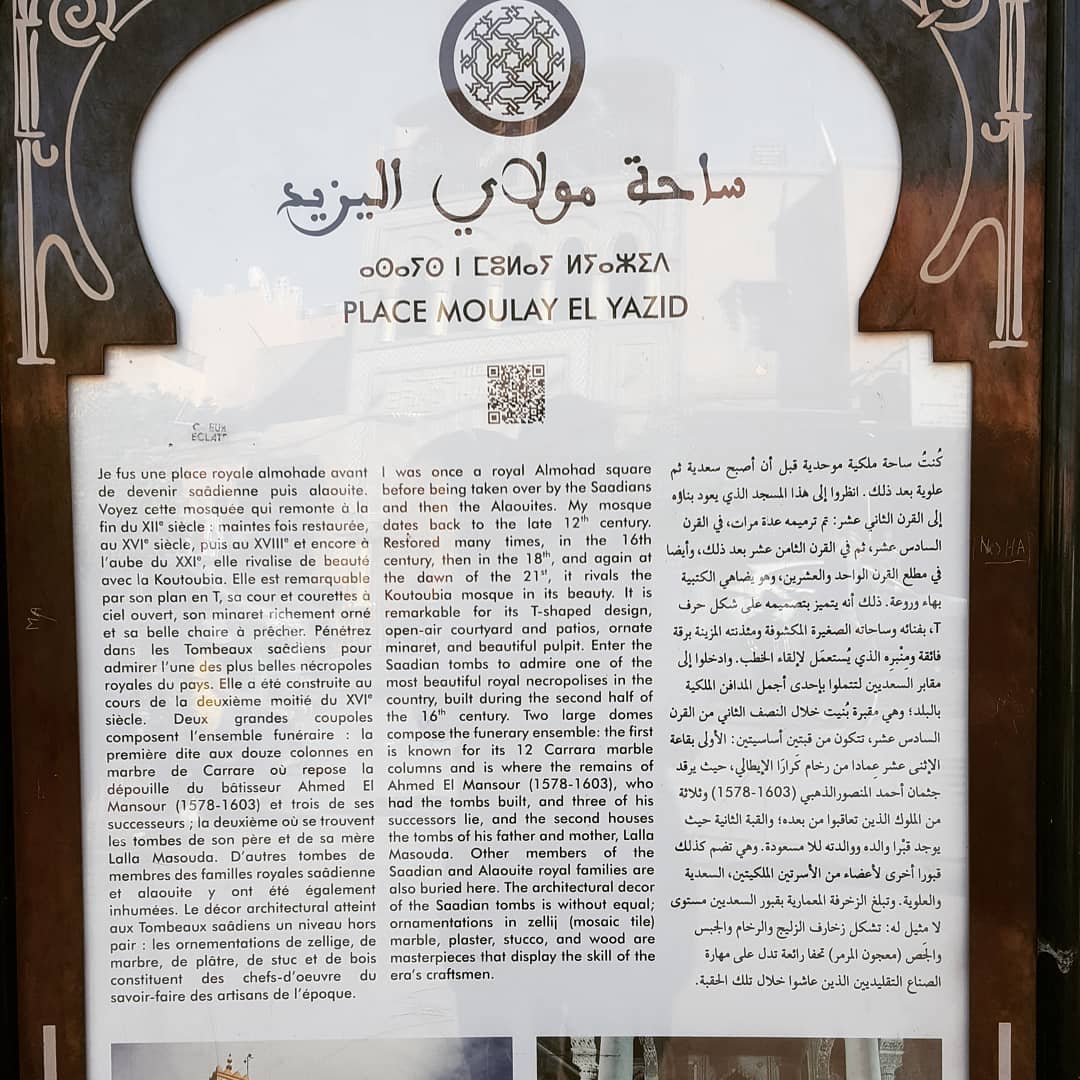 ساحة مولاي اليزيد
ⴰⵙⴰⵢⵙ ⵏ ⵎⵓⵍⴰⵢ ⵍⵢⴰⵣⵉⴷ
PLACE MOULAY EL YAZID
Je fus une place royale almohade avant
de devenir saâdienne puis alaouite.
Voyez cette mosquée qui remonte à la
fin du XIIᵉ siècle : maintes fois restaurée,
au XVIᵉ siècle, puis au XVIIIᵉ et encore à
l'aube du XXIᵉ, elle rivalise de beauté
avec la Koutoubia. Elle est remarquable
par son plan en T, sa cour et courettes à
ciel ouvert, son minaret richement orné
et sa belle chaire à prêcher. Pénétrez
dans les Tombeaux saâdiens pour
admirer l'une des plus belles nécropoles
royales du pays. Elle a été construite au
cours de la deuxième moitié du XVIᵉ
siècle. Deux grandes coupoles
composent l'ensemble funéraire : la
première dite aux douze colonnes en
marbre de Carrare où repose la
dépouille du bâtisseur Ahmed El
Mansour (1578-1603) et trois de ses
successeurs ; la deuxième où se trouvent
les tombes de son père et de sa mère
Lalla Masouda. D'autres tombes de
membres des familles royales saâdienne
et alaouite y ont été également
inhumées. Le décor architectural atteint
aux Tombeaux saâdiens un niveau hors
pair : les ornementations de zellige, de
marbre, de plâtre, de stuc et de bois
constituent des chefs-d'oeuvre du
savoir-faire des artisans de l'époque.
I was once a royal Almohad square
before being taken over by the Saadians
and then the Alaouites. My mosque
dates back to the late 12ᵗʰ century.
Restored many times, in the 16th
century, then in the 18ᵗʰ, and again at
the dawn of the 21ˢᵗ, it rivals the
Koutoubia mosque in its beauty. It is
remarkable for its T-shaped design,
open-air courtyard and patios, ornate
minaret, and beautiful pulpit. Enter the
Saadian tombs to admire one of the
most beautiful royal necropolises in the
country, built during the second half of
the 16ᵗʰ century. Two large domes
compose the funerary ensemble: the first
is known for its 12 Carrara marble
columns and is where the remains of
Ahmed El Mansour (1578-1603), who
had the tombs built, and three of his
successors lie, and the second houses
the tombs of his father and mother, Lalla
Masouda. Other members of the
Saadian and Alaouite royal families are
also buried here. The architectural decor
of the Saadian tombs is without equal;
ornamentations in zellij (mosaic tile)
marble, plaster, stucco, and wood are
masterpieces that display the skill of the
era's craftsmen.
كُنتُ ساحة ملكية موحدية قبل أن أصبح سعدية ثم
علوية بعد ذلك. انظروا إلى هذا المسجد الذي يعود بناؤه
إلى القرن الثاني عشر: تم ترميمه عدة مرات، في القرن
السادس عشر، ثم في القرن الثامن عشر بعد ذلك، وأيضا
في مطلع القرن الواحد والعشرين، وهو يضاهي الكتبية
بهاء وروعة. ذلك أنه يتميز بتصميمه على شكل حرف
T، بفنائه وساحاته الصغيرة المكشوفة ومئذنته المزينة برقة
فائقة ومنْبرِه الذي يُستعمَل لإلقاء الخطب. وادخلوا إلى
مقابر السعديين لتتملوا بإحدى أجمل المدافن الملكية
بالبلد؛ وهي مقبرة بُنيت خلال النصف الثاني من القرن
السادس عشر، تتكون من قبتين أساسيتين: الأولى بقاعة
الإثنى عشر عِمادا من رخام كَرارَا الإيطالي، حيث يرقد
جثمان أحمد المنصورالذهبي (1603-1578) وثلاثة
من الملوك الذين تعاقبوا من بعده؛ والقبة الثانية حيث
يوجد قبْرا والده ووالدته للا مسعودة. وهي تضم كذلك
قبورا أخرى لأعضاء من الأسرتين الملكيتين، السعدية
والعلوية. وتبلغ الزخرفة المعمارية بقبور السعديين مستوى
لا مثيل له: تشكل زخارف الزليج والرخام والجبس
والجَص (معجون المرمر) تحفا رائعة تدل على مهارة
الصناع التقليديين الذين عاشوا خلال تلك الحقبة.